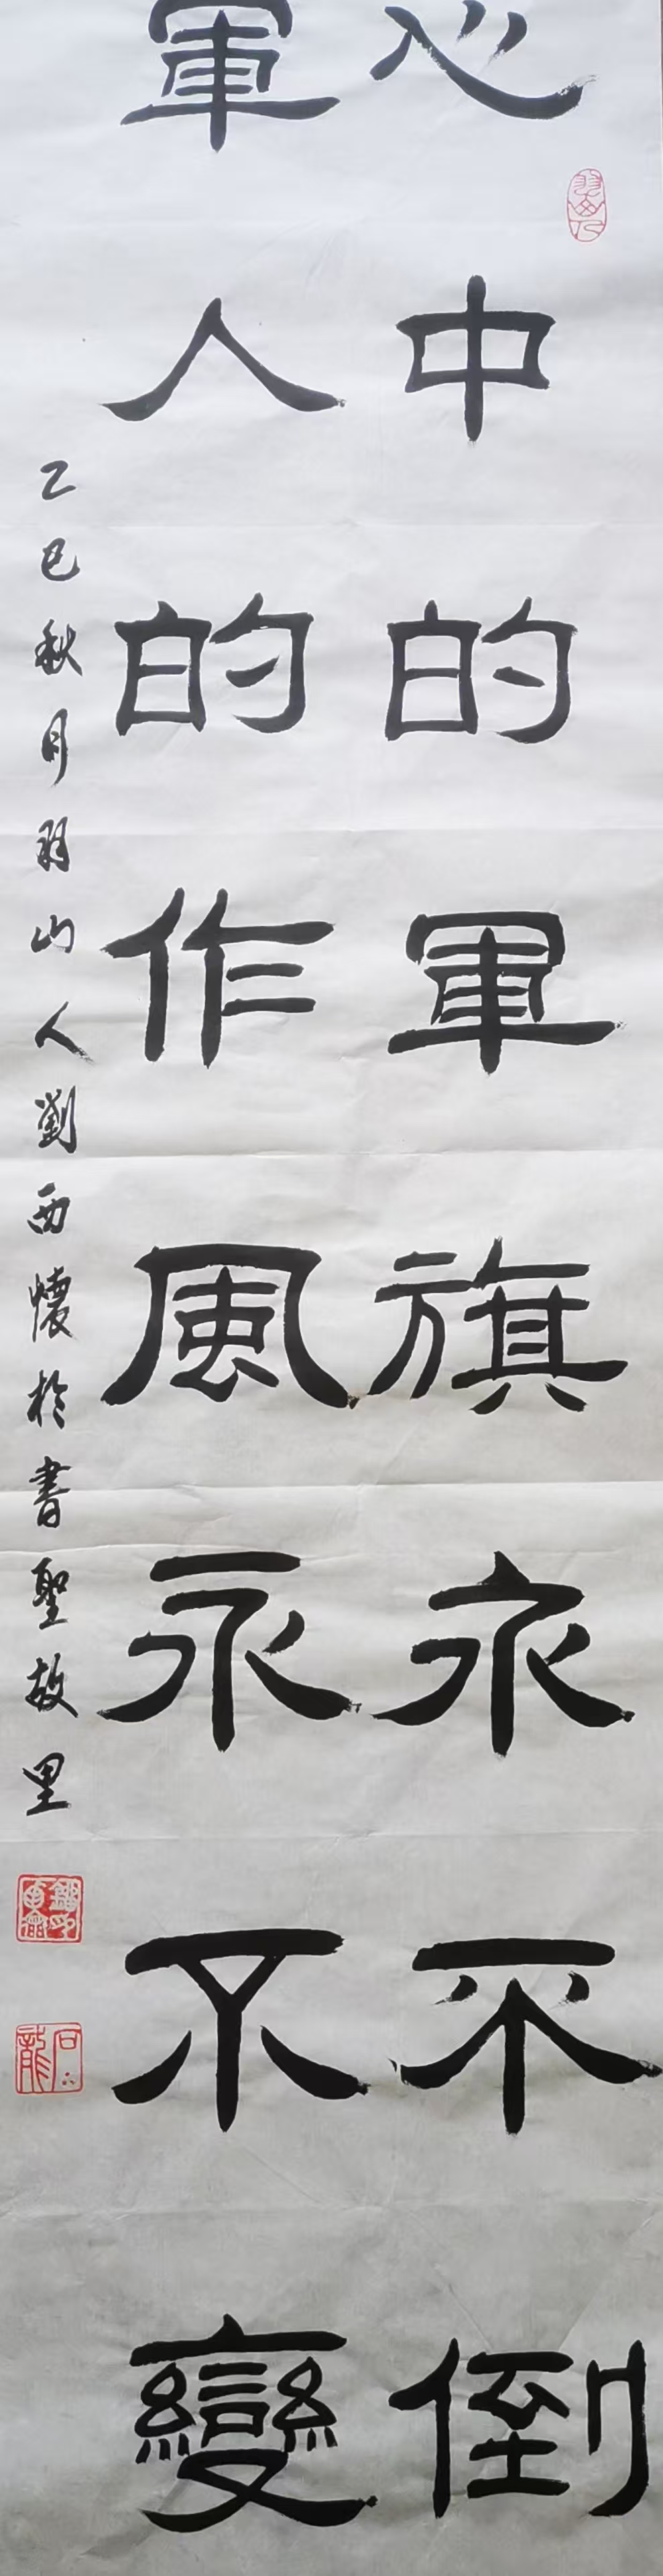 心中的軍旗永不倒
軍人的作風永不變
乙巳秋月羽山人劉西懷於書聖故里